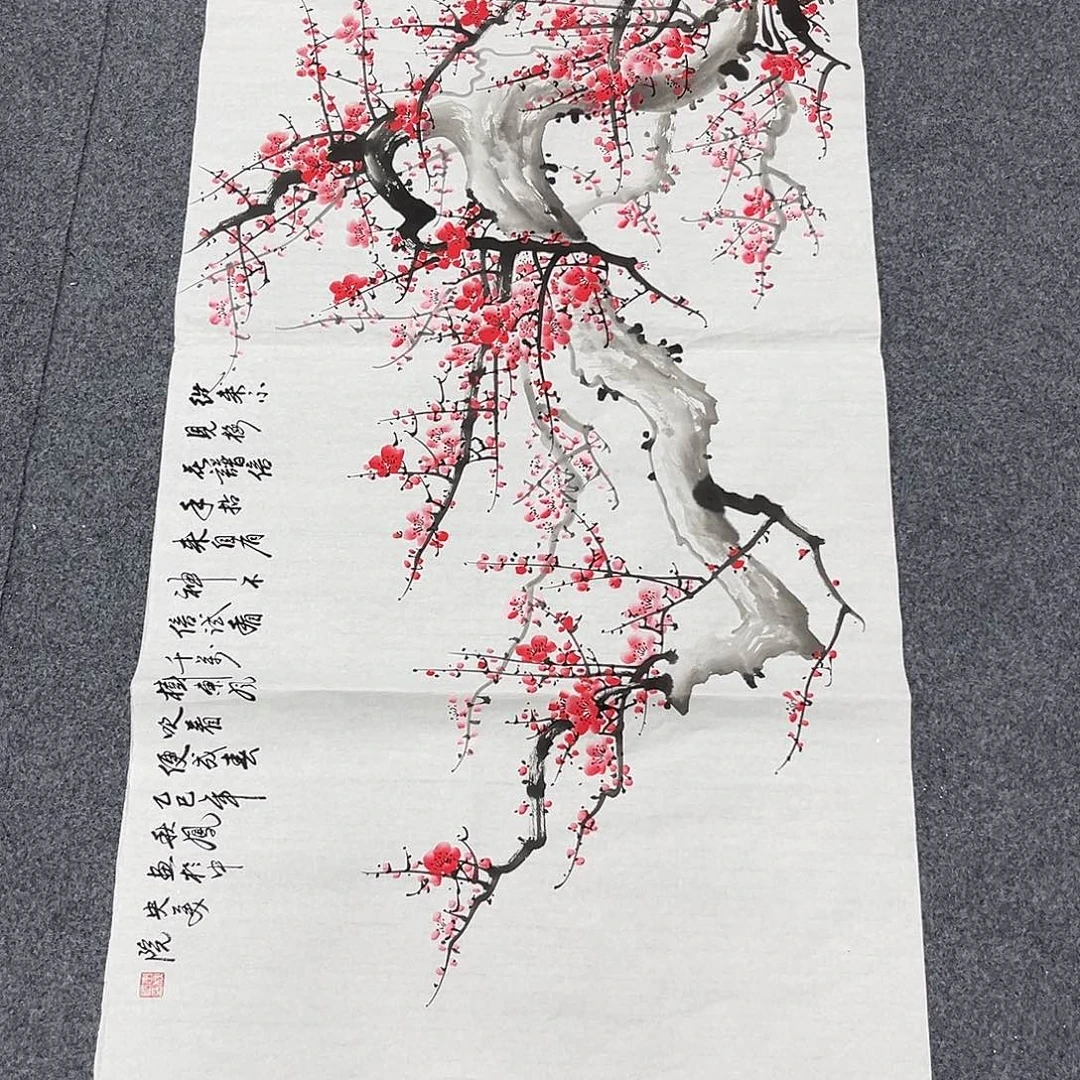 從來不
見梅
花譜信
手拈
來自有
神不
信試看
千萬
樹東風
吹着
便成春
乙巳年
秋鳳
畫於中
央美
院